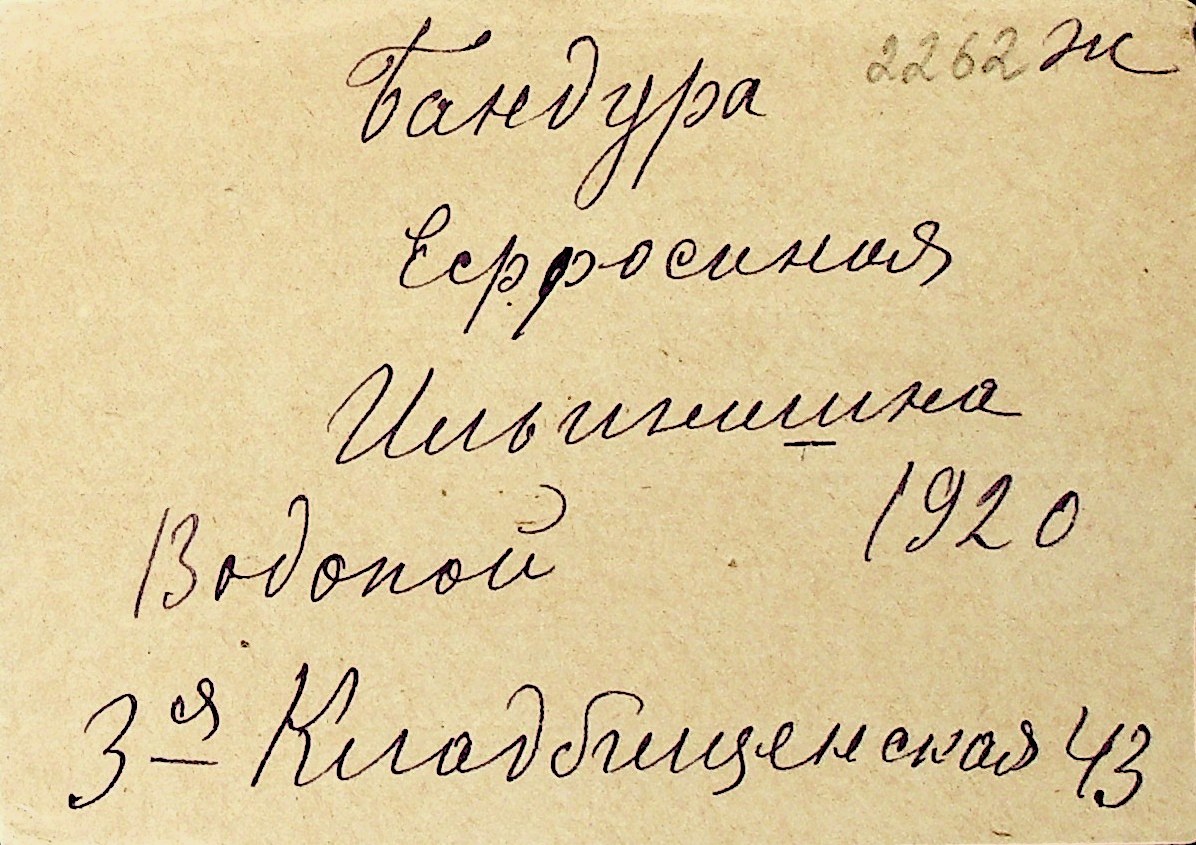 2262 ж
Бандура
Ефросиния
Ильинишна
1920
Водопой
3ся Кладбищенская 43